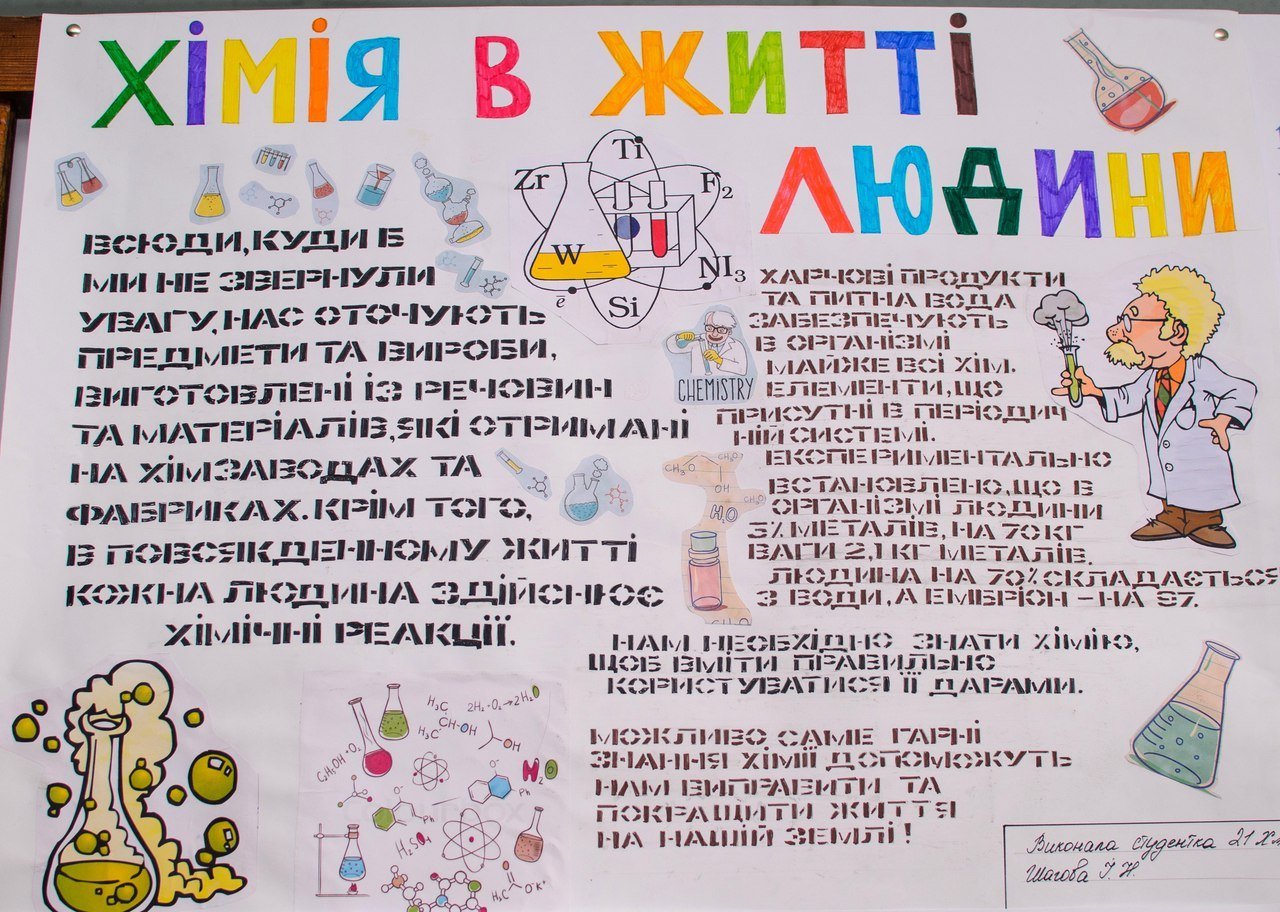 ХІМІЯ В ЖИТТІ
ЛЮДИНИ
ВСЮДИ, КУДИ Б
МИ НЕ ЗВЕРНУЛИ
УВАГУ, НАС ОТОЧУЮТЬ
ПРЕДМЕТИ ТА ВИРОБИ,
ВИГОТОВЛЕНІ ІЗ РЕЧОВИН
ТА МАТЕРІАЛІВ, ЯКІ ОТРИМАНІ
НА ХІМЗАВОДАХ ТА
ФАБРИКАХ. КРІМ ТОГО,
В ПОВСЯКДЕННОМУ ЖИТТІ
КОЖНА ЛЮДИНА ЗДІЙСНЮЄ
ХІМІЧНІ РЕАКЦІЇ.
Ti
Zr
F₂
W
NI₃
ē
Si
CHEMISTRY
ХАРЧОВІ ПРОДУКТИ
ТА ПИТНА ВОДА
ЗАБЕЗПЕЧУЮТЬ
В ОРГАНІЗМІ
МАЙЖЕ ВСІ ХІМ.
ЕЛЕМЕНТИ, ЩО
ПРИСУТНІ В ПЕРІОДИЧ
НІЙ СИСТЕМІ.
ЕКСПЕРИМЕНТАЛЬНО
ВСТАНОВЛЕНО, ЩО В
ОРГАНІЗМІ ЛЮДИНИ
3% МЕТАЛІВ, НА 70 КГ
ВАГИ 2,1 КГ МЕТАЛІВ.
ЛЮДИНА НА 70% СКЛАДАЄТЬСЯ
З ВОДИ, А ЕМБРІОН - НА 97.
CH₃O
CH₃O
OH
CH₃O
H₂O
НАМ НЕОБХІДНО ЗНАТИ ХІМІЮ,
ЩОБ ВМІТИ ПРАВИЛЬНО
КОРИСТУВАТИСЯ ЇЇ ДАРАМИ.
МОЖЛИВО САМЕ ГАРНІ
ЗНАННЯ ХІМІЇ ДОПОМОЖУТЬ
НАМ ВИПРАВИТИ ТА
ПОКРАЩИТИ ЖИТТЯ
НА НАШІЙ ЗЕМЛІ!
H₃C
2H₂+O₂→2H₂O
H₃C
CH-OH
H₃C
OH
C₂H₅OH+O₂
O⁻
H₂O
Ph
O⁻
Ph
H₂SO₄
O
H₃C
O⁻K⁺
Виконала студентка 21 Х
Шагова І. Н.